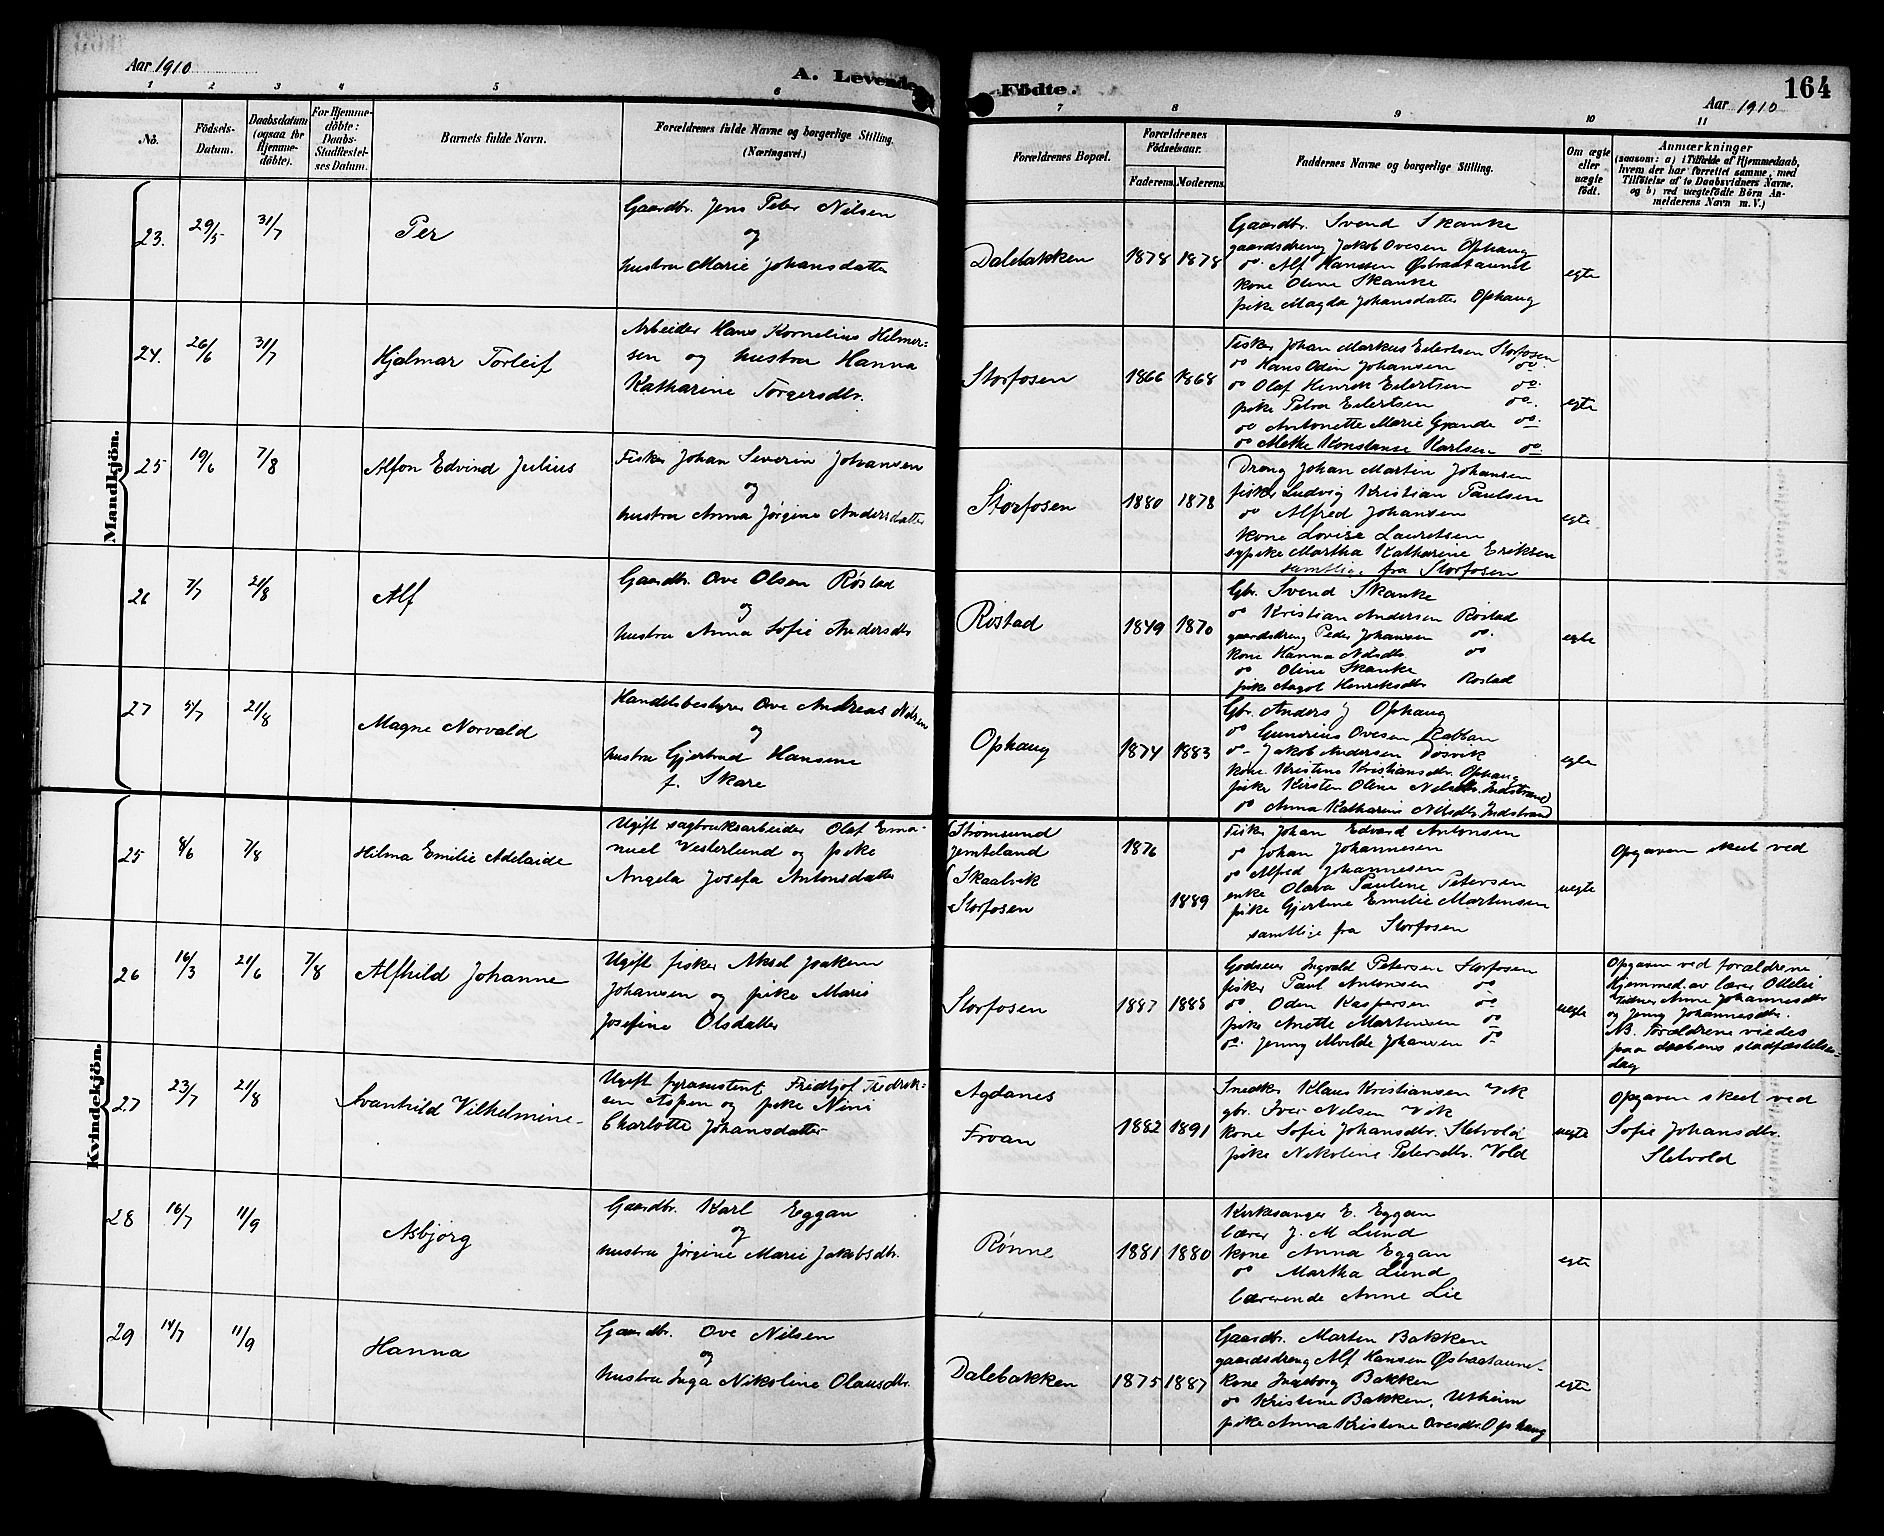 Aar 1910
A. Levende
Födte.
Aar 1910
164
1 2 3 4 5 6 7 8 9 10 11
No.
Födsels-Datum.
Daabsdatum (ogsaa for Hjemmedöbte).
For Hjemmedöbte: Daabs-Stadfæstelses Datum.
Barnets fulde Navn.
Forældrenes fulde Navne og borgerlige Stilling. (Næringsvei.)
Forældrenes Bopæl.
Forældrenes Födselsaar.
Faderens. Moderens.
Faddernes Navne og borgerlige Stilling.
Om ægte eller uægte födt.
Anmærkninger
(saasom: a) i Tilfælde af Hjemmedaab, hvem der har forrettet samme, med Tilföielse af to Daabsvidners Navne. og b) ved uægtefödte Börn Anmelderens Navn m. V.)
Mandkjön.
23. 29/5 31/7
Per
Gaardbr. Jens Peter Nilsen
og
hustru Marie Johansdatter
Dalebakken
1878 1878
Gaardbr. Svend Skanke
gaardsdreng Jakob Ovesen Ophaug
do Alf Hansen Østraataunet
kone Oline Skanke
pike Magda Johansdatter Ophaug
egte
24. 26/6 31/7
Hjalmar Torleif
Arbeider Hans Kornelius Hilmer-
sen og hustru Hanna
Katharine Torgersdtr.
Storfosen
1866 1868
Fisker Johan Markus Eilertsen Storfosen
do Hans Oden Johansen do
do Olaf Henrik Eilertsen do
pike Petra Eilertsen do
do Antonette Marie Grande do
do Mette Konstanse Karlsen do
egte
25 19/6 7/8
Alfon Edvind Julius
Fisker Johan Severin Johansen
og
hustru Anna Jørgine Andersdatter
Storfosen
1880 1878
Dreng Johan Martin Johansen
fisker Ludvig Kristian Paulsen
do Alfred Johansen
kone Lovise Lauritsen
sypike Martha Katharine Eriksen
samtlige fra Storfosen
egte
26 7/7 21/8
Alf
Gaardbr. Ove Olsen Røstad
og
hustru Anna Sofie Andersdtr
Røstad
1849 1870
Gbr. Svend Skanke
do Kristian Andersen Røstad
gaardsdreng Peder Johansen do
kone Hanna Nilsdtr do
do Oline Skanke
pike Aagot Henriksdtr Røstad
egte
27 5/7 21/8
Magne Norvald
Handelsbestyrer Ove Andreas Nilsen
og
hustru Gjertrud Hansine
f. Skare
Ophaug
1874 1883
Gbr. Anders J Ophaug
do Gunerius Ovesen
do Jakob Andersen
kone Kristine Kristiansdtr. Ophaug
pike Kirsten Oline Nilsdtr. Indstrand
do Anna Katharine Nilsdtr. Indstrand
egte
Kvindekjön.
25 8/6 7/8
Hilma Emilie Adelaide
Ugift sagbruksarbeider Olaf Ema-
nuel Vesterlund og pike
Angela Josefa Antonsdatter
Strømsund
Jemteland
Skaalvik
Storfosen
1876
1889
Fisker Johan Edvard Antonsen
do Johan Johannesen
do Alfred Johannesen
enke Olava Pauline Petersen
pike Gjertine Emilie Martinsen
samtlige fra Storfosen
uegte
Opgaven skeet ved
26 16/3 21/6 7/8
Alfhild Johanne
Ugift fisker Aksel Joakim
Johansen og pike Marie
Josefine Olsdatter
Storfosen
1887 1888
Godseier Ingvald Petersen Storfosen
fisker Paul Antonsen do
do Oden Kaspersen do
pike Anette Martinsen do
do Jenny Alvilde Johansen do
uegte
Opgaven ved forældrene
Hjemmed. av lærer Ottelei
Vidner Anne Johannesdtr
og Jenny Johannesdtr.
NB. Forældrene viedes
paa daabens stadfæstelses-
dag
27 23/7 21/8
Svanhild Vilhelmine
Ugift fyrassistent Fridtjof Fredrik-
sen Aspen og pike Nini
Charlotte Johansdatter
Agdanes
Froan
1882 1891
Snedker Klaus Kristiansen Vik
gbr. Iver Nilsen Vik
kone Sofie Johansdtr. Sletvold
pike Nikoline Petersdtr. Vold
uegte
Opgaven skeet ved
Sofie Johansdtr.
Sletvold
28 16/7 11/9
Asbjørg
Gaardbr. Karl Eggan
og
hustru Jørgine Marie Jakobsdtr.
Rønne
1881 1880
Kirkesanger E. Eggan
lærer J. M Lund
kone Anna Eggan
do Martha Lund
lærerinde Anne Lie
egte
29 14/7 11/9
Hanna
Gaardbr. Ove Nilsen
og
hustru Inga Nikoline Olausdtr.
Dalebakken
1875 1887
Gaardbr. Marten Bakken
gaardsdreng Alf Hansen Østraataune
kone Ingeborg Bakken
do Kristine Bakken, Utheim
pike Anna Kristine Ovesdtr. Ophaug
egte